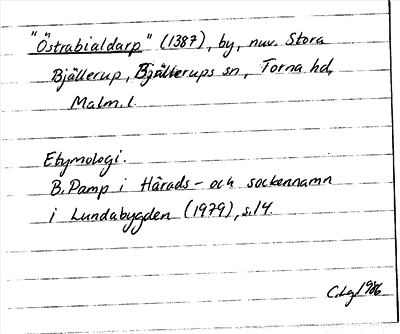 "Östrabialdarp" (1387), by, nuv. Stora
Bjällerup, Bjällerups sn, Torna hd,
Malm. l.
Etymologi.
B. Pamp i Härads- och sockennamn
i Lundabygden (1979), s. 14.
C. Lg/1986